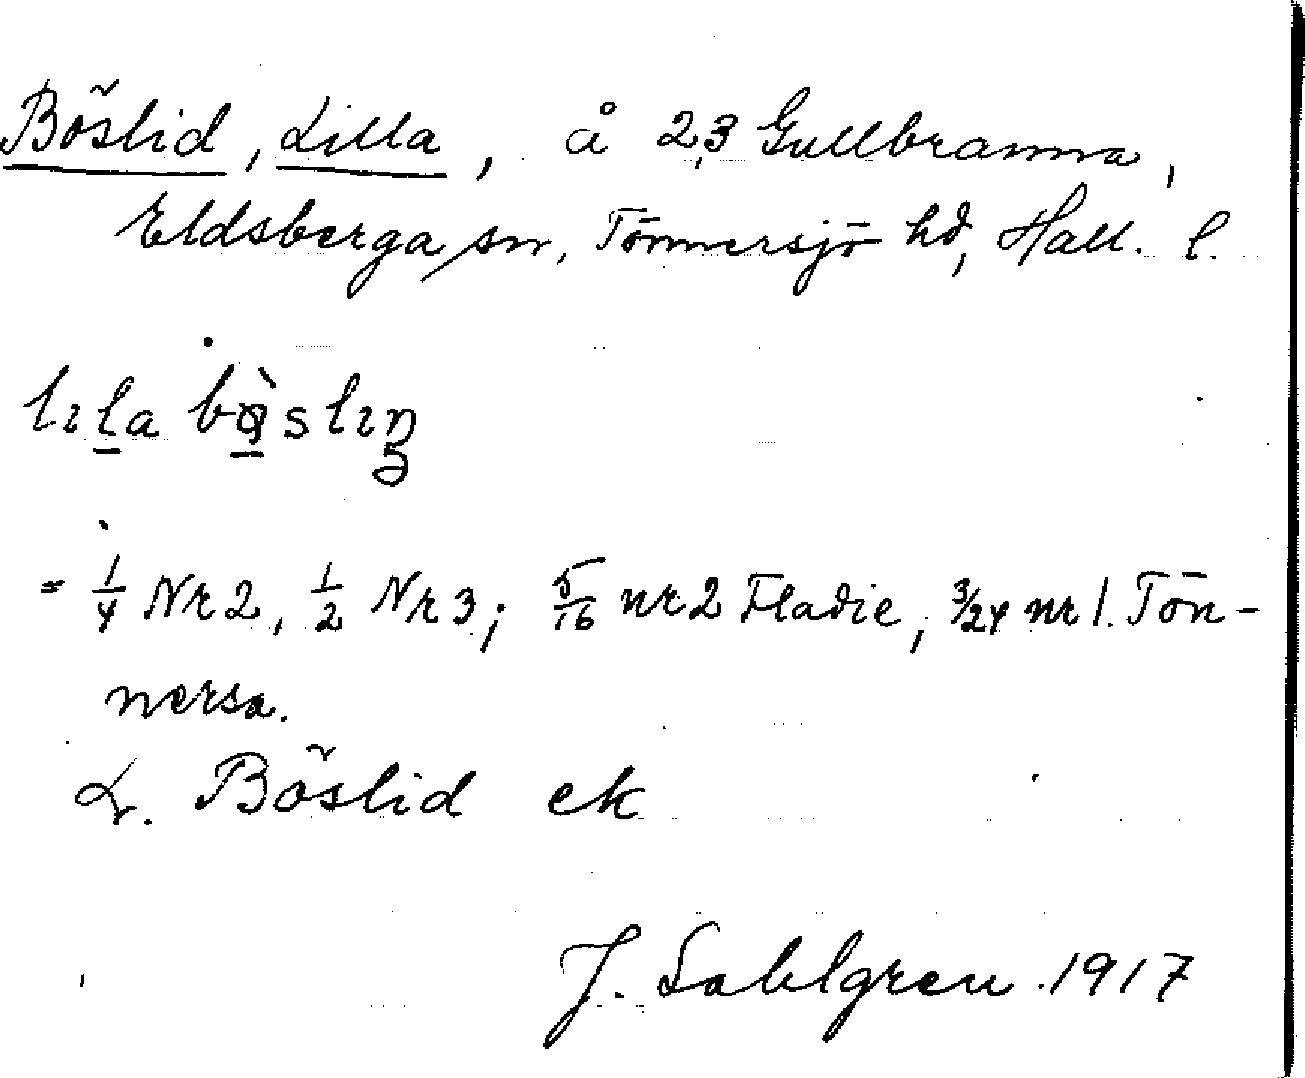 Böslid, Lilla, å 2,3 Gullbranna,
Eldsberga sn, Tönnersjö hd, Hall. l.
lıla
= 1/4 Nr 2, 1/2 Nr 3; 5/16 nr 2 Fladie, 3/24 nr 1. Tön-
nersa.
L. Böslid ek
J. Sahlgren 1917